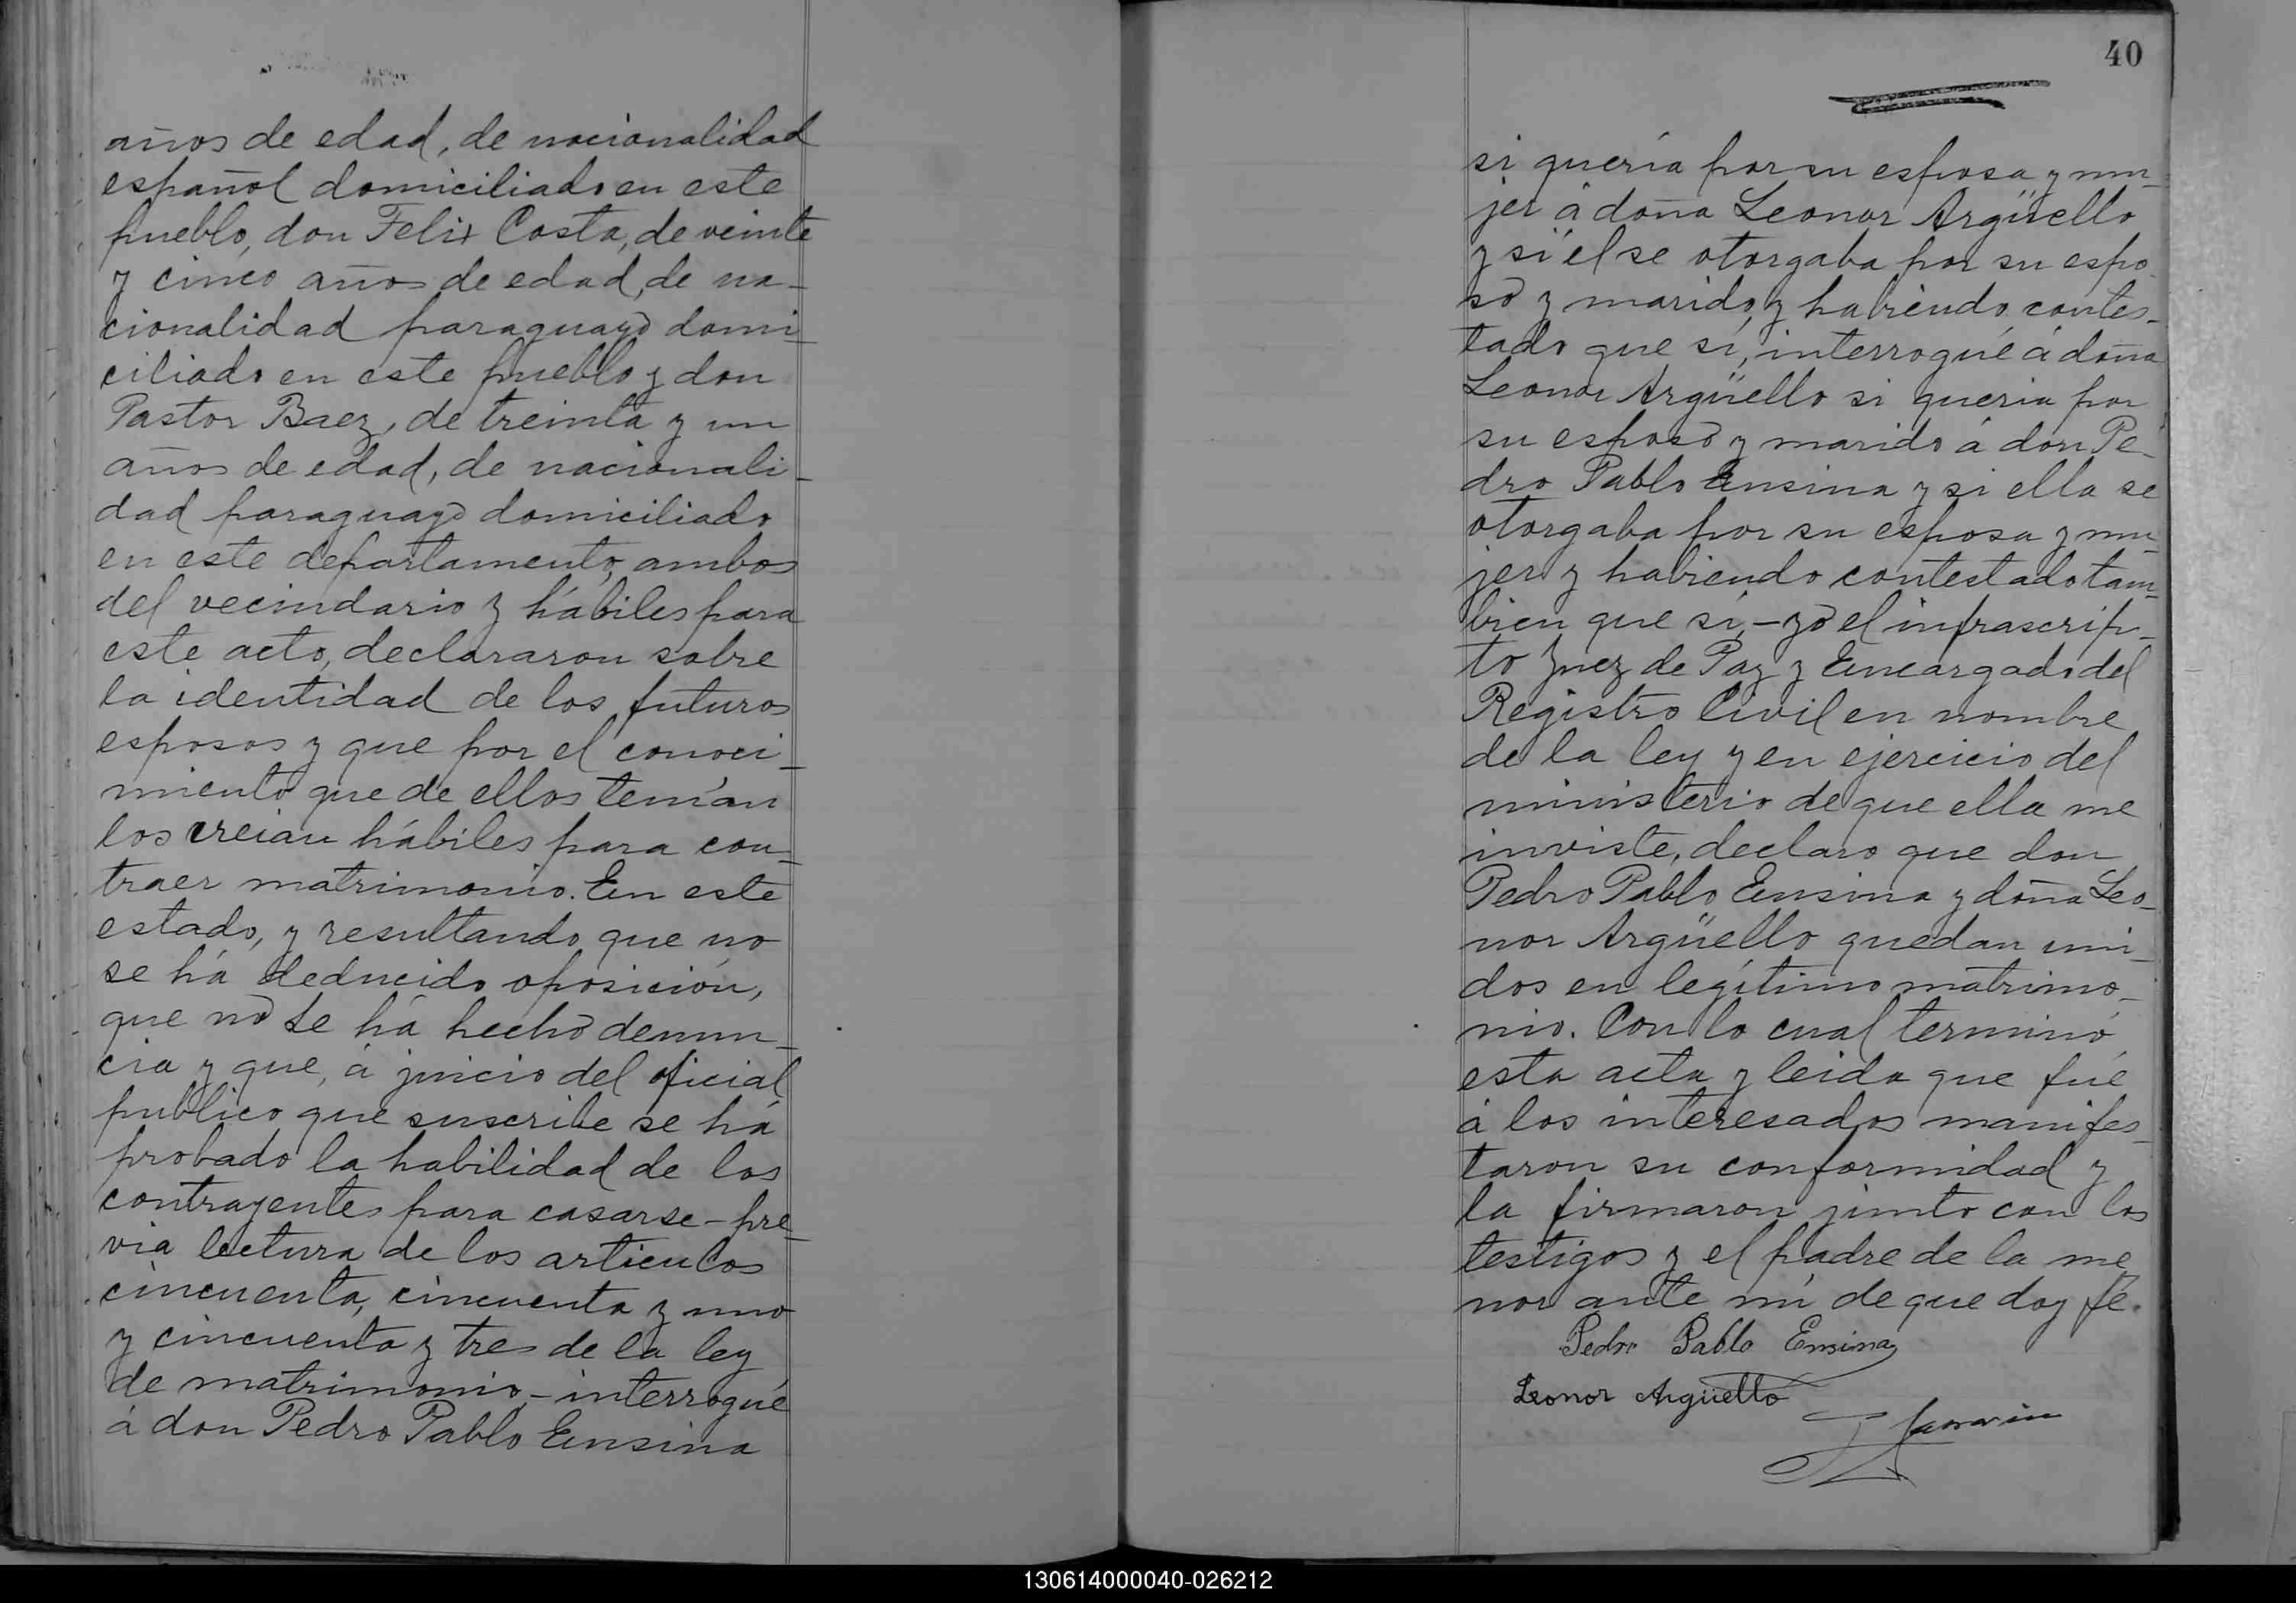 años de edad, de nacionalidad
español domiciliado en este
pueblo, don Felix Costa, de veinte
y cinco años de edad, de na-
cionalidad paraguayo domi-
ciliado en este pueblo y don
Pastor Baez, de treinta y un
años de edad, de nacionali-
dad paraguayo domiciliado
en este departamento, ambos
del vecindario y hábiles para
este acto, declararon sobre
la identidad de los futuros
esposos y que por el conoci-
miento que de ellos tenían
los creian hábiles para con-
traer matrimonio. En este
estado, y resultando que no
se há deducido oposición,
que no se há hecho denun-
cia y que, á juicio del oficial
publico que suscribe se há
probado la habilidad de los
contrayentes para casarse - pre-
via lectura de los articulos
cincuenta, cincuenta y uno
y cincuenta y tres de la ley
de matrimonio, - interrogué
á don Pedro Pablo Ensina
40
si quería por su esposa y mu-
jer á doña Leonor Argüello
y si él se otorgaba por su espo-
so y marido, y habiendo contes-
tado que sí, interrogué á doña
Leonor Argüello si queria por
su esposo y marido á don Pe-
dro Pablo Ensina y si ella se
otorgaba por su esposa y mu-
jer y habiendo contestado tam-
bien que sí, - yo el infrascrip-
to Juez de Paz y Encargado del
Registro Civil en nombre
de la ley y en ejercicio del
ministerio de que ella me
inviste, declaro que don
Pedro Pablo Ensina y doña Leo-
nor Argüello quedan uni-
dos en legítimo matrimo-
nio. Con lo cual terminó
esta acta y leida que fué
á los interesados manifes-
taron su conformidad y
la firmaron junto con los
testigos y el padre de la me-
nor ante mí de que doy fé.
Pedro Pablo Ensina
Leonor Argüello
130614000040-026212